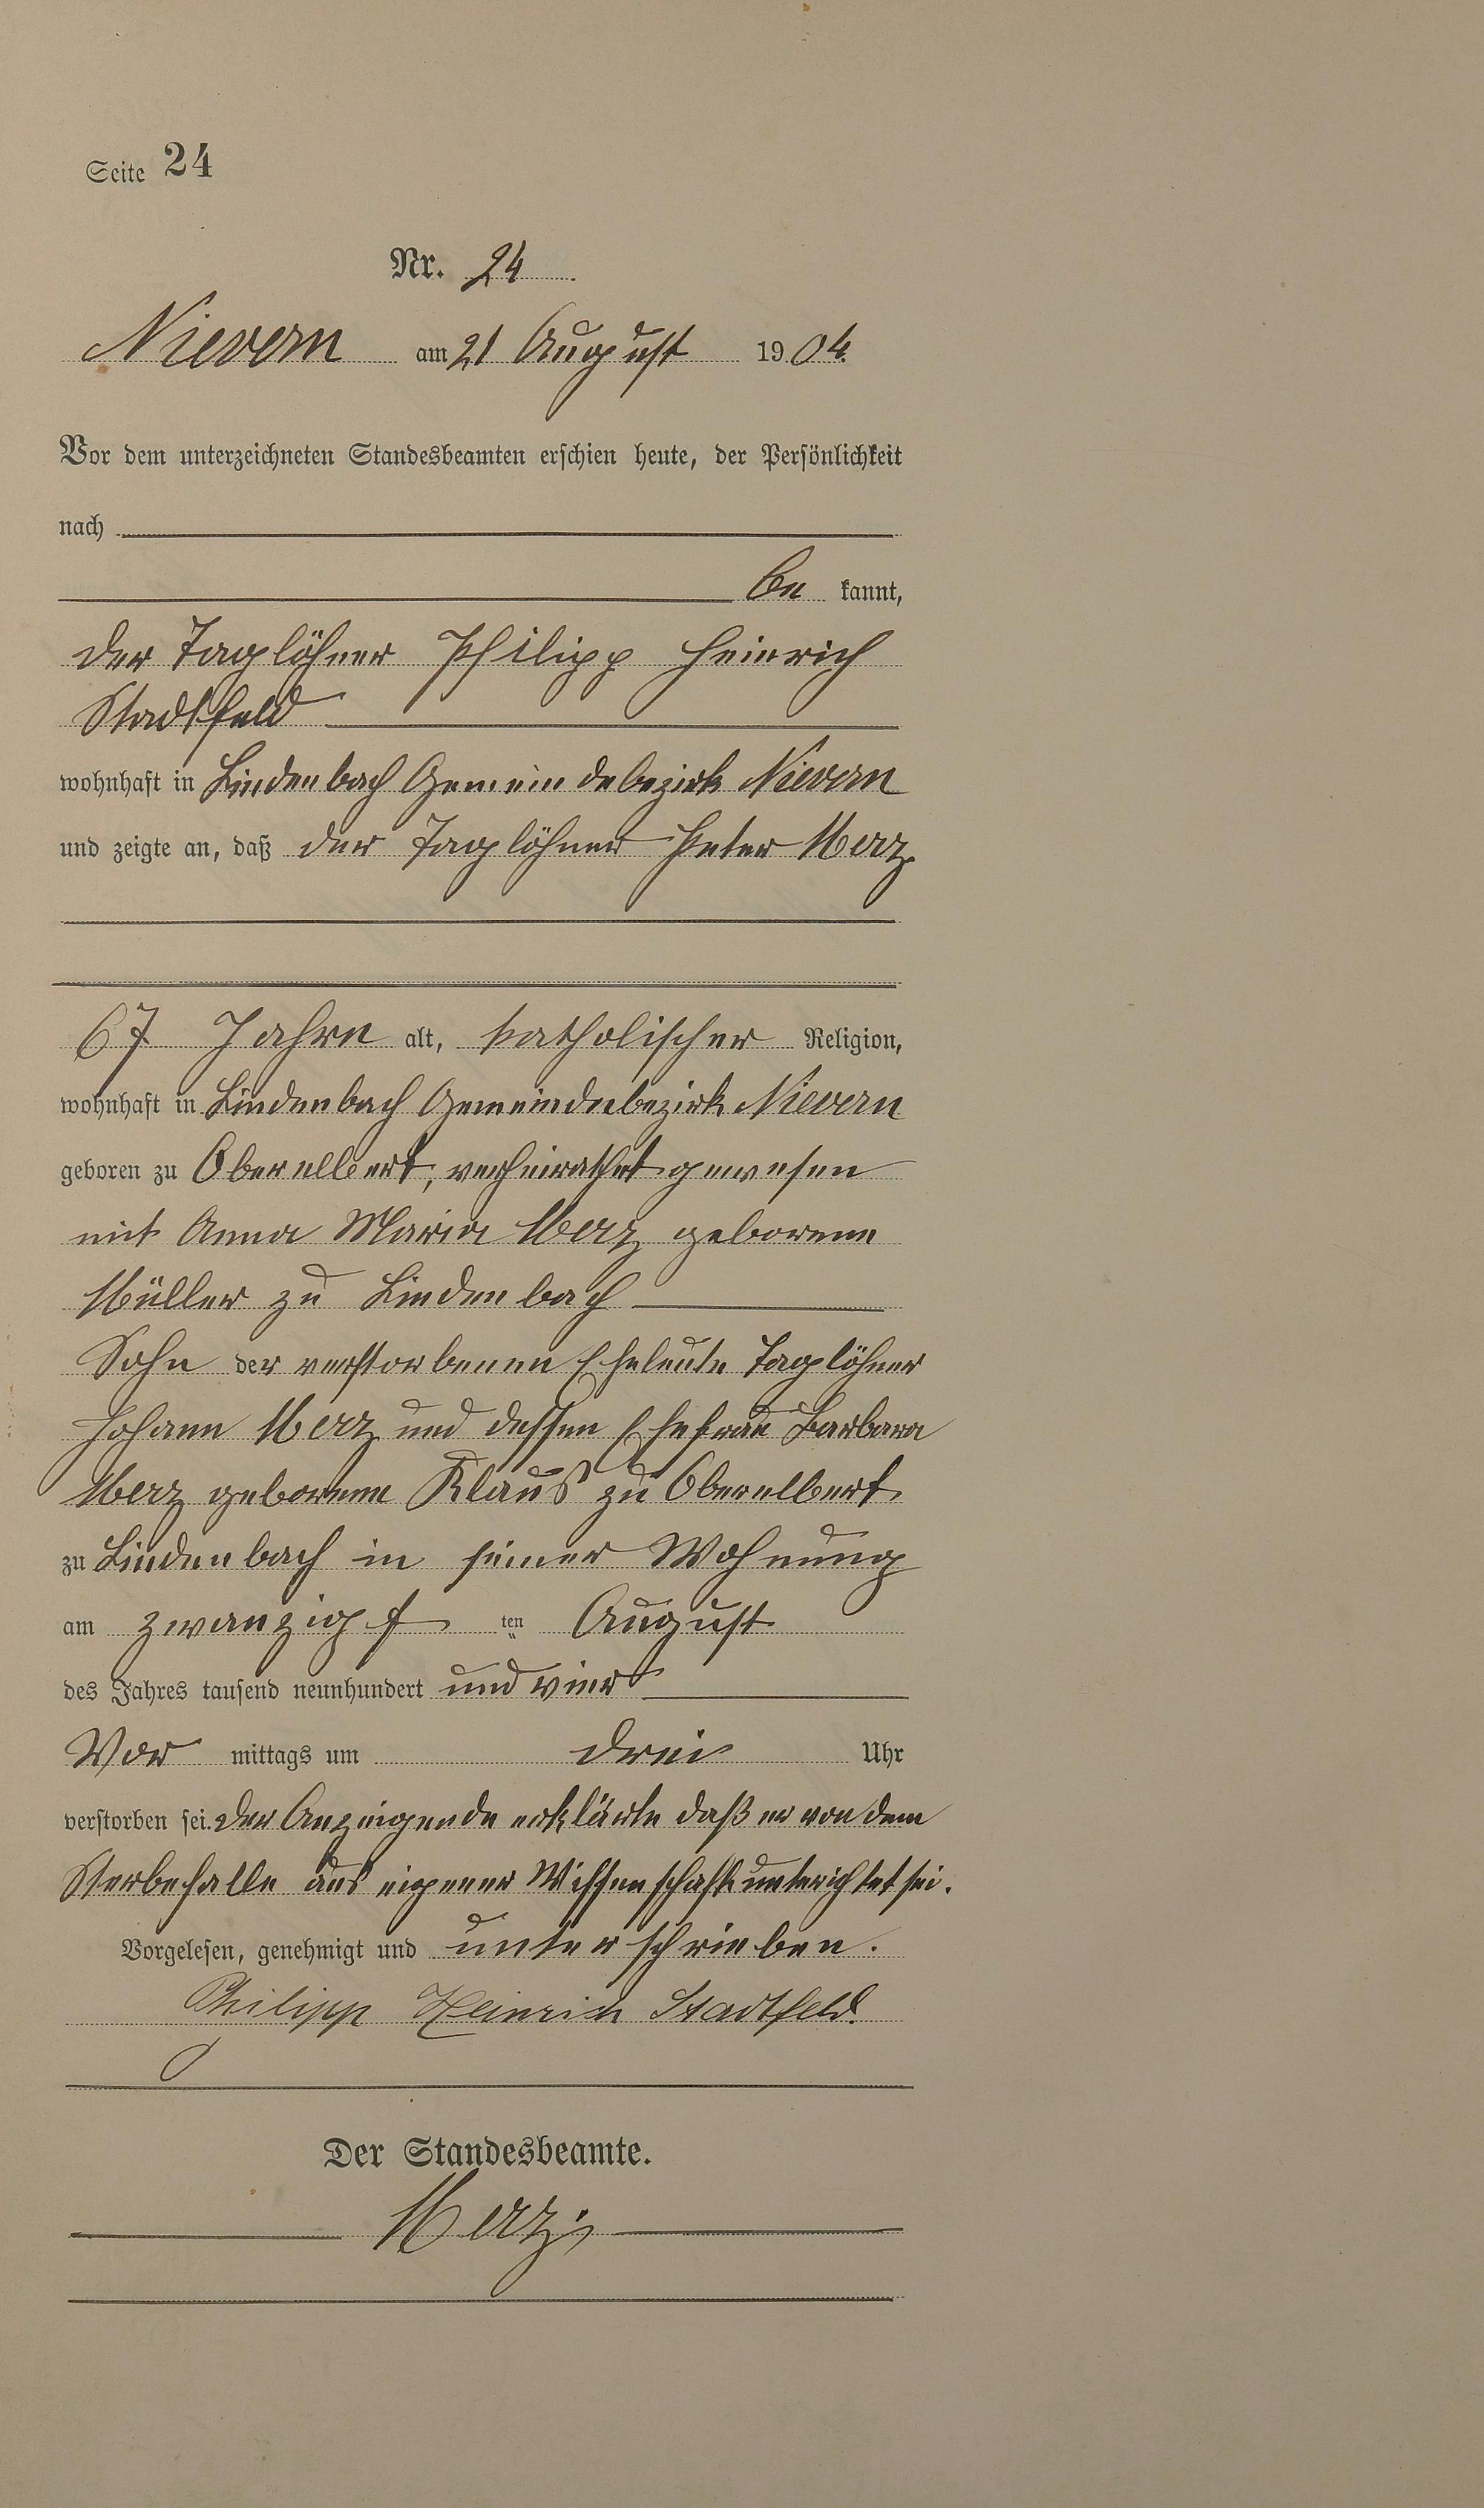 Seite 24
Nr. 24
Nievern am 21 August 1904.
Vor dem unterzeichneten Standesbeamten erschien heute, der Persönlichkeit
nach
be kannt,
der Taglöhner Philipp Heinrich
Stadtfeld
wohnhaft in Lindenbach Gemeindebezirk Nievern
und zeigte an, daß der Taglöhner Peter Merz
67 Jahre alt, katholischer Religion,
wohnhaft in Lindenbach Gemeindebezirk Nievern
geboren zu Oberelbert, verheirathet gewesen
mit Anna Maria Merz geborene
Müller zu Lindenbach
Sohn der verstorbenen Eheleute Taglöhner
Johann Merz und dessen Ehefrau Barbara
Merz geborene Klaus zu Oberelbert
zu Lindenbach in seiner Wohnung
am zwanzigs ten August
des Jahres tausend neunhundert und vier
Vor mittags um drei Uhr
verstorben sei. Der Anzeigende erklärte daß er von dem
Sterbefalle aus eigener Wissenschaft unterichtet sei.
Vorgelesen, genehmigt und unterschrieben.
Philipp Heinrich Stadtfeld.
Der Standesbeamte.
Merz